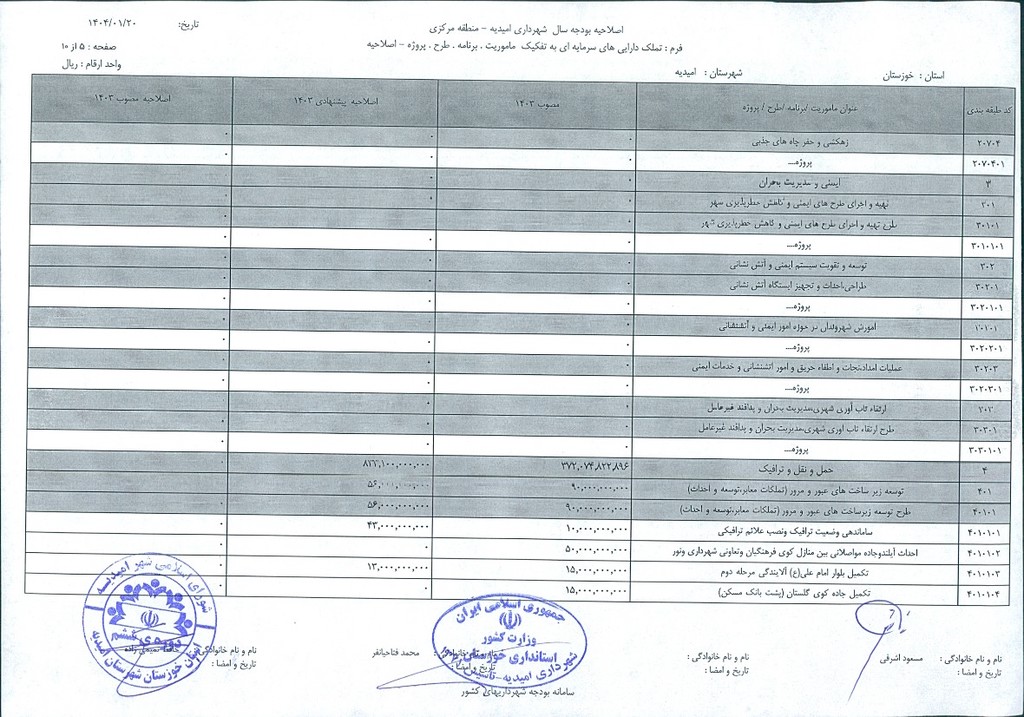 اصلاحیه بودجه سال شهرداری امیدیه - منطقه مرکزی
تاریخ: ۱۴۰۴/۰۱/۲۰
فرم : تملک دارایی های سرمایه ای به تفکیک ماموریت . برنامه . طرح . پروژه - اصلاحیه
صفحه : ۵ از ۱۰
استان : خوزستان شهرستان : امیدیه واحد ارقام : ریال
کد طبقه بندی عنوان ماموریت /برنامه /طرح / پروژه مصوب ۱۴۰۳ اصلاحیه پیشنهادی ۱۴۰۳ اصلاحیه مصوب ۱۴۰۳
۲۰۷۰۴ زهکشی و حفر چاه های جذبی ۰ ۰ ۰
۲۰۷۰۴۰۱ پروژه... ۰ ۰ ۰
۳ ایمنی و مدیریت بحران ۰ ۰ ۰
۳۰۱ تهیه و اجرای طرح های ایمنی و کاهش خطرپذیری شهر ۰ ۰ ۰
۳۰۱۰۱ طرح تهیه و اجرای طرح های ایمنی و کاهش خطرپذیری شهر ۰ ۰ ۰
۳۰۱۰۱۰۱ پروژه... ۰ ۰ ۰
۳۰۲ توسعه و تقویت سیستم ایمنی و آتش نشانی ۰ ۰ ۰
۳۰۲۰۱ طراحی،احداث و تجهیز ایستگاه آتش نشانی ۰ ۰ ۰
۳۰۲۰۱۰۱ پروژه... ۰ ۰ ۰
آموزش شهروندان در حوزه امور ایمنی و آتشنشانی ۰ ۰ ۰
۳۰۲۰۲۰۱ پروژه... ۰ ۰ ۰
۳۰۲۰۳ عملیات امداد،نجات و اطفاء حریق و امور آتشنشانی و خدمات ایمنی ۰ ۰ ۰
۳۰۲۰۳۰۱ پروژه... ۰ ۰ ۰
۳۰۳ ارتقاء تاب آوری شهری،مدیریت بحران و پدافند غیرعامل ۰ ۰ ۰
۳۰۳۰۱ طرح ارتقاء تاب آوری شهری،مدیریت بحران و پدافند غیرعامل ۰ ۰ ۰
۳۰۳۰۱۰۱ پروژه... ۰ ۰ ۰
۴ حمل و نقل و ترافیک ۳۷۲,۰۷۴,۸۲۲,۸۹۶ ۰
۴۰۱ توسعه زیر ساخت های عبور و مرور (تملکات معابر،توسعه و احداث) ۹۰,۰۰۰,۰۰۰,۰۰۰ ۵۶,۰۰۰,۰۰۰,۰۰۰ ۰
۴۰۱۰۱ طرح توسعه زیرساخت های عبور و مرور (تملکات معابر،توسعه و احداث) ۹۰,۰۰۰,۰۰۰,۰۰۰ ۵۶,۰۰۰,۰۰۰,۰۰۰ ۰
۴۰۱۰۱۰۱ ساماندهی وضعیت ترافیک ونصب علائم ترافیکی ۱۰,۰۰۰,۰۰۰,۰۰۰ ۴۳,۰۰۰,۰۰۰,۰۰۰ ۰
۴۰۱۰۱۰۲ احداث آیلندوجاده مواصلاتی بین منازل کوی فرهنگیان وتعاونی شهرداری ونور ۵۰,۰۰۰,۰۰۰,۰۰۰ ۰ ۰
۴۰۱۰۱۰۳ تکمیل بلوار امام علی(ع) آلایندگی مرحله دوم ۱۵,۰۰۰,۰۰۰,۰۰۰ ۱۳,۰۰۰,۰۰۰,۰۰۰ ۰
۴۰۱۰۱۰۴ تکمیل جاده کوی گلستان (پشت بانک مسکن) ۱۵,۰۰۰,۰۰۰,۰۰۰ ۰ ۰
شورای اسلامی شهر امیدیه
دوره ی ششم
استان خوزستان شهرستان امیدیه
جمهوری اسلامی ایران
وزارت کشور
استانداری خوزستان
شهرداری امیدیه
نام و نام خانوادگی : مسعود اشرفی
تاریخ و امضا :
نام و نام خانوادگی :
تاریخ و امضا :
نام و نام خانوادگی : محمد فتاحیانفر
تاریخ و امضا :
نام و نام خانوادگی :
تاریخ و امضا :
سامانه بودجه شهرداریهای کشور